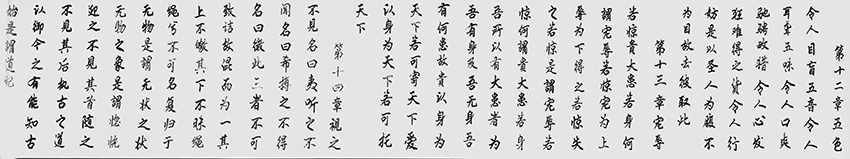 第十二章五色
令人目盲五音令人
耳聋五味令人口爽
驰骋畋猎令人心发
狂难得之货令人行
妨是以圣人为腹不
为目故去彼取此
第十三章宠辱
若惊贵大患若身何
謂宠辱若惊宠为上
辱为下得之若惊失
之若惊是謂宠辱若
惊何謂贵大患若身
吾所以有大患者为
吾有身及吾无身吾
有何患故贵以身为
天下若可寄天下爱
以身为天下若可托
天下
第十四章视之
不见名曰夷听之不
闻名曰希搏之不得
名曰微此三者不可
致诘故混而为一其
上不皦其下不昧绳
绳兮不可名复归于
无物是謂无状之状
无物之象是謂惚恍
迎之不见其首随之
不见其后执古之道
以御今之有能知古
始是謂道纪